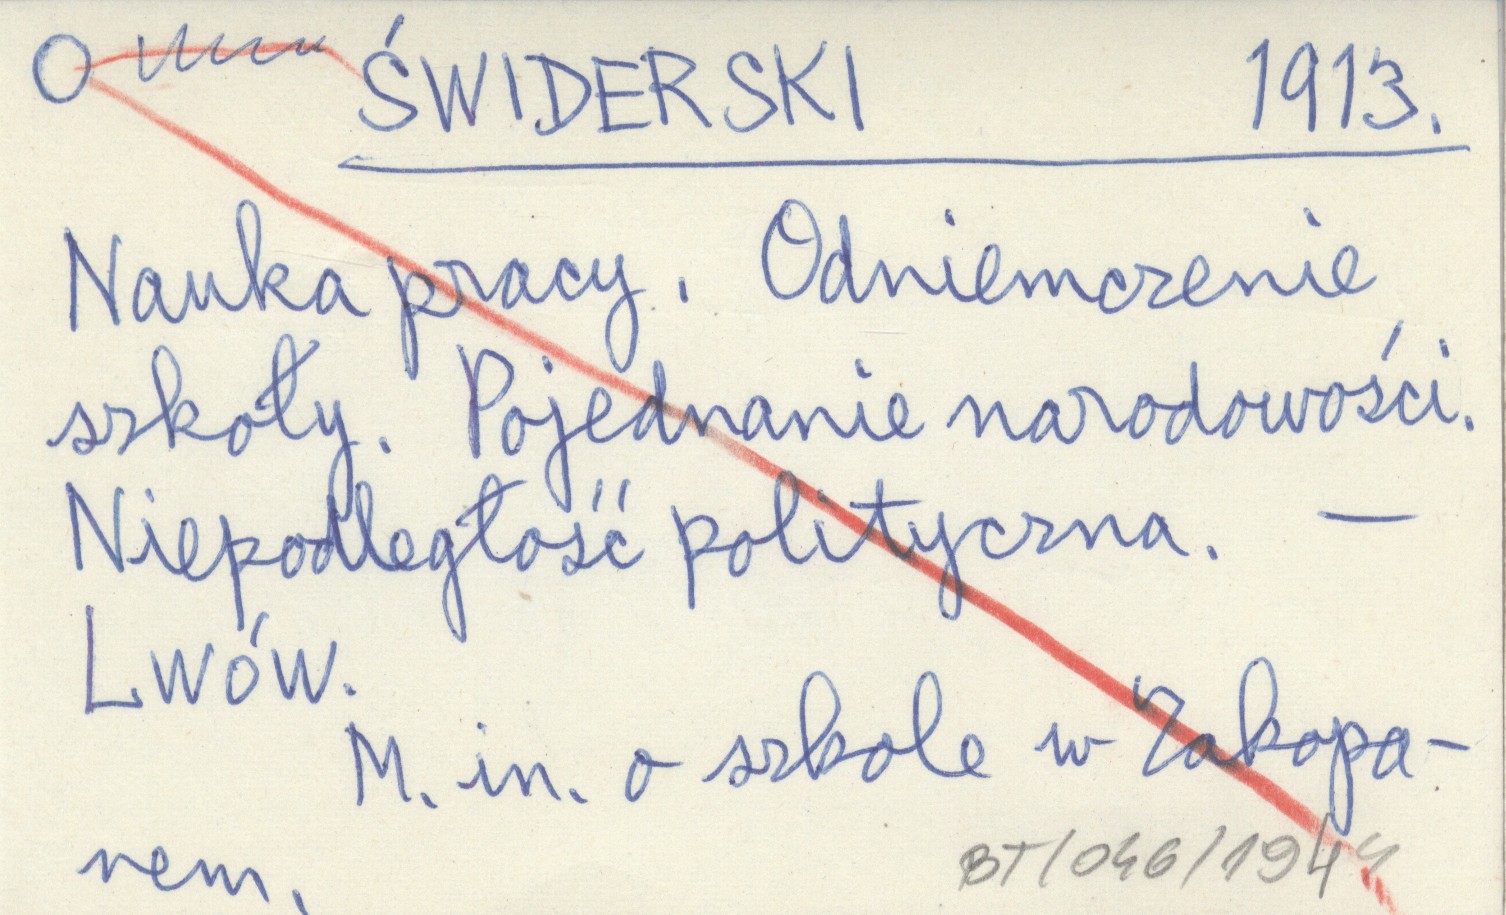 O ŚWIDERSKI 1913.
Nauka pracy. Odniemczenie
szkoły. Pojednanie narodowości.
Niepodległość polityczna. —
Lwów.
M. in. o szkole w Zakopa-
nem.
BT/046/1944